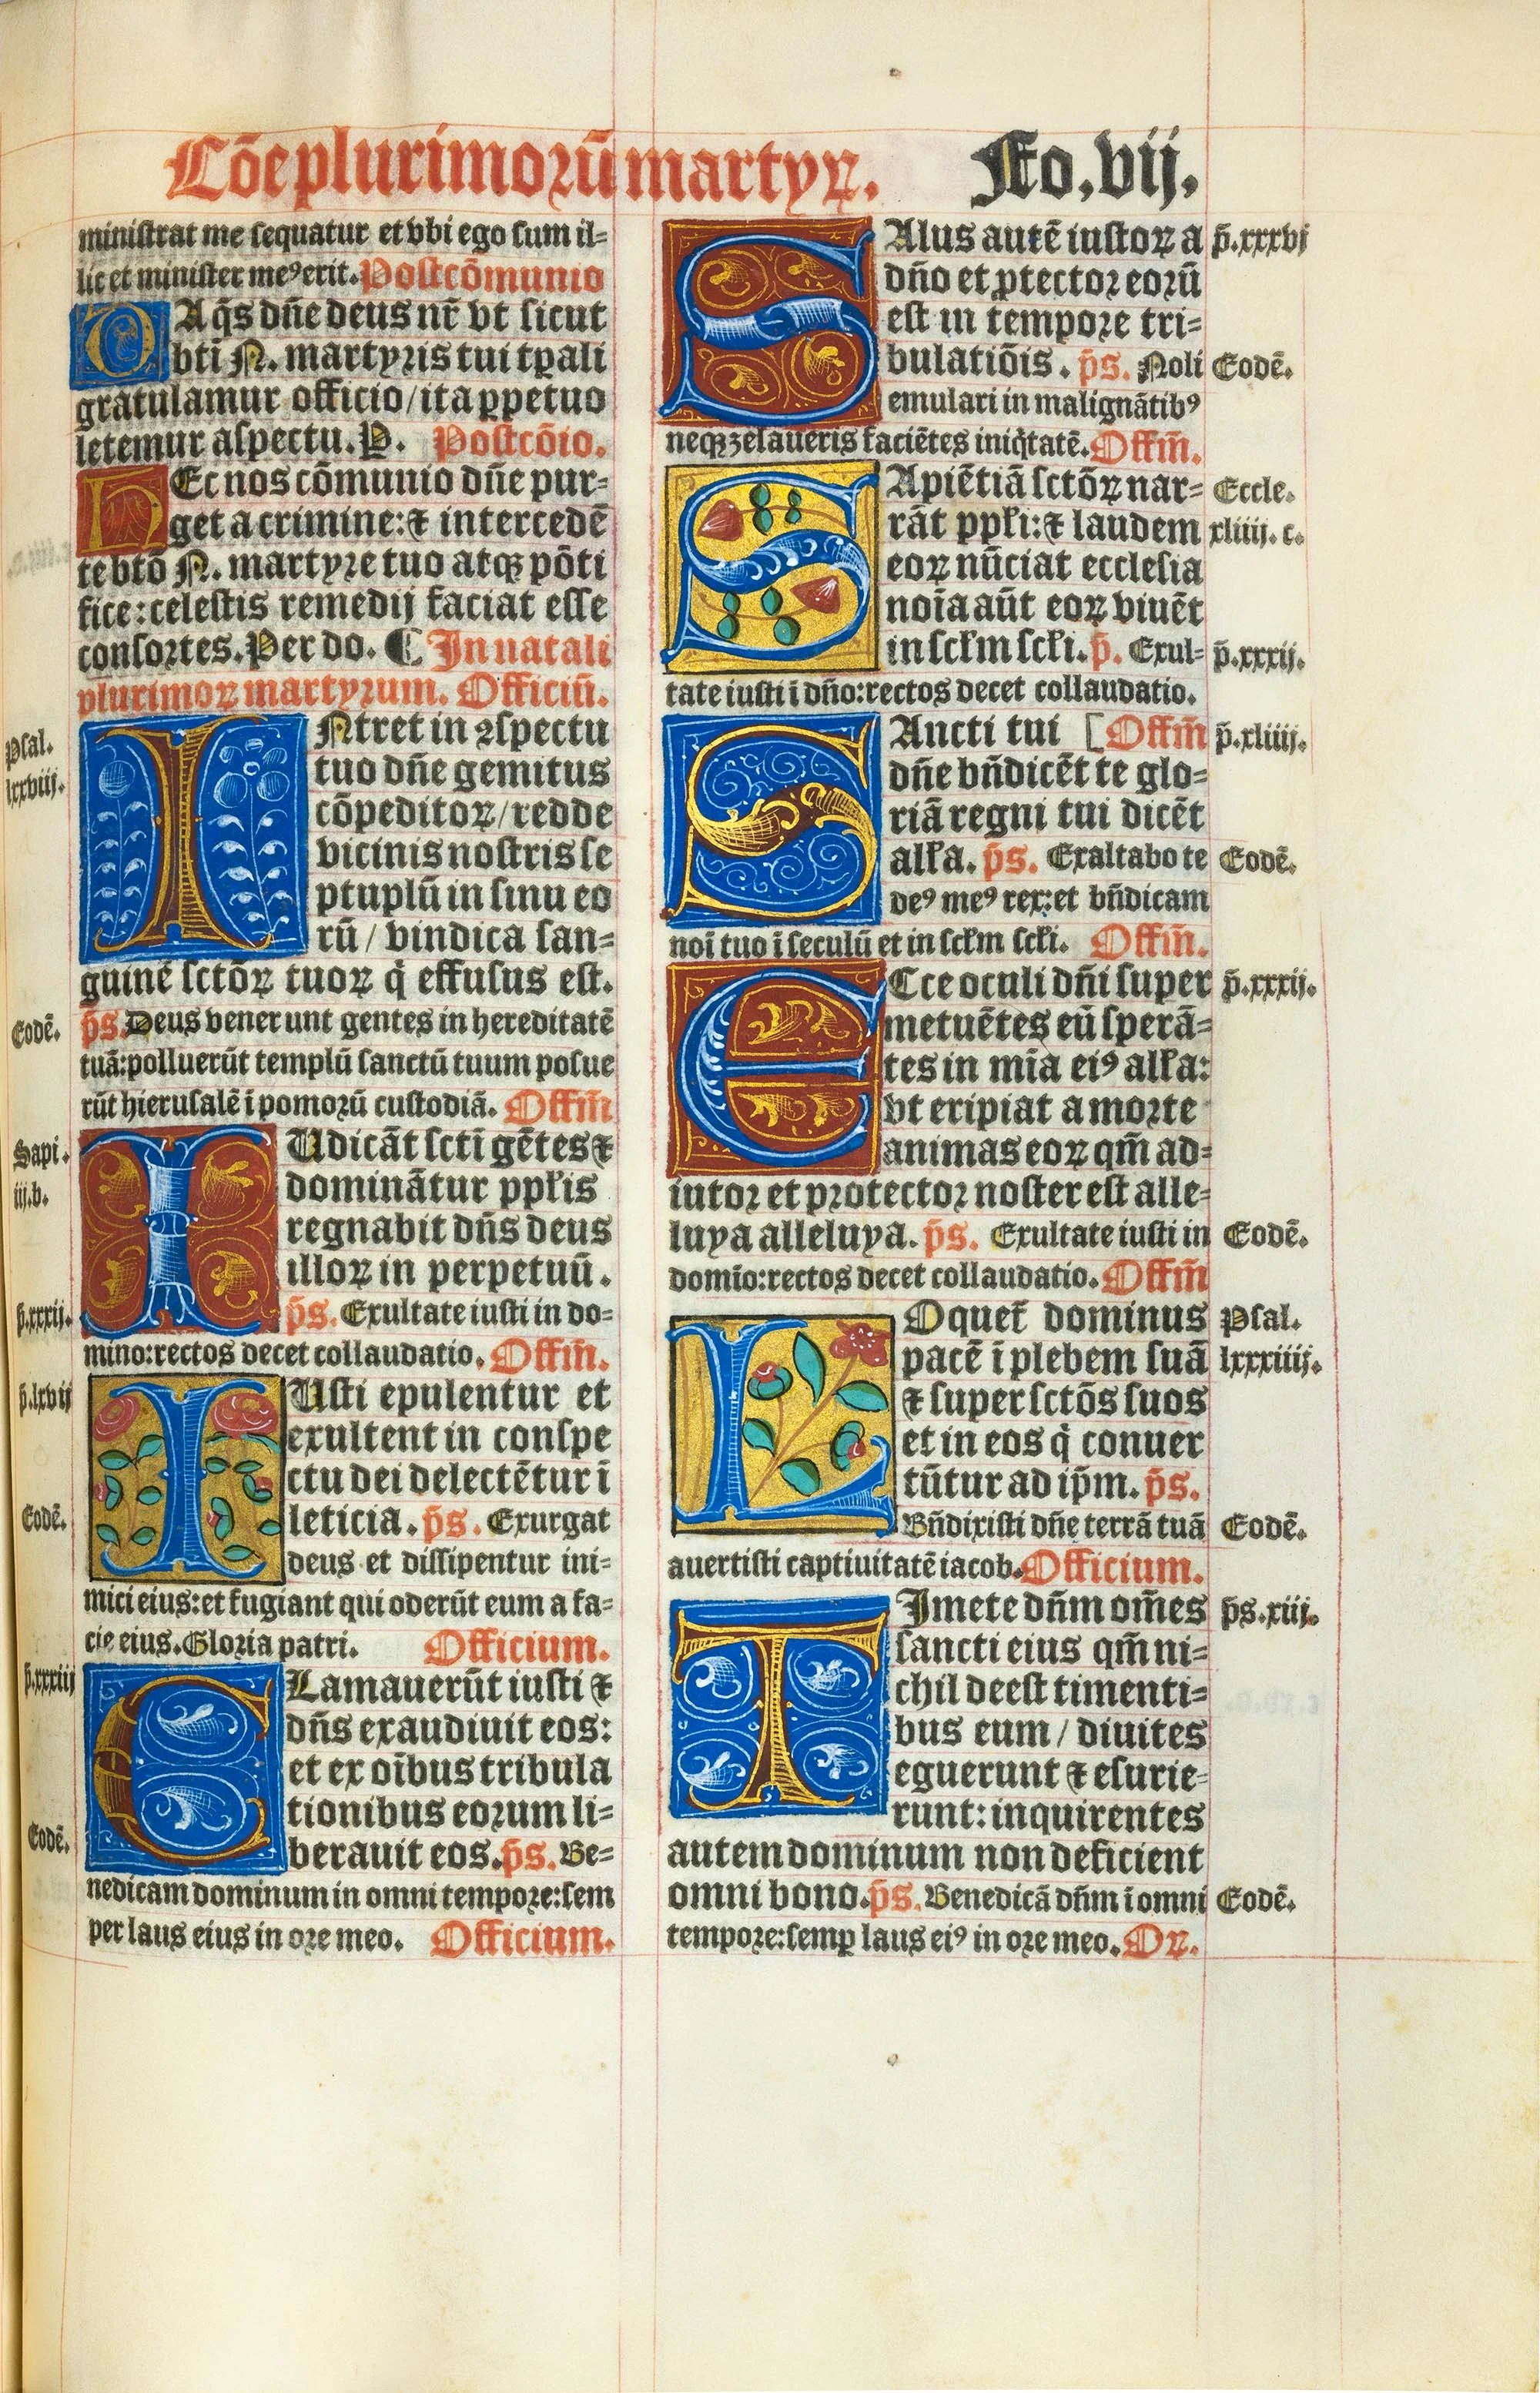 Cōe plurimorū martyꝝ. Fo.vij.
ministrat me sequatur et vbi ego sum il=
lic et minister meꝰ erit. Postcōmunio
QAq̄s dn̄e deus nr̄ vt sicut
bti N. martyris tui tꝑali
gratulamur officio/ita ꝑpetuo
letemur aspectu. P. Postcōio.
HEc nos cōmunio dn̄e pur=
get a crimine: ⁊ intercedē
te btō N. martyre tuo atqꝫ pōti
fice: celestis remedij faciat esse
consortes. Per do. ¶ In natali
plurimoꝝ martyrum. Officiū.
Psal.
lxxviij.
INtret in ꝯspectu
tuo dn̄e gemitus
cōpeditoꝝ/redde
vicinis nostris se
ptuplū in sinu eo
rū/vindica san=
guinē sctōꝝ tuoꝝ q̇ effusus est.
Eodē.
p̄s. Deus venerunt gentes in hereditatē
tuā: polluerūt templū sanctū tuum posue
rūt hierusalē ī pomorū custodiā. Offm̄
Sapi.
iij.b.
IUdicāt sctī gētes ⁊
dominātur ppłis
regnabit dn̄s deus
illoꝝ in perpetuū.
p̄.xxxij.
p̄s. Exultate iusti in do=
mino: rectos decet collaudatio. Offm̄.
p̄.lxvij
IUsti epulentur et
exultent in conspe
ctu dei delectētur ī
Eodē.
leticia. p̄s. Exurgat
deus et dissipentur ini=
mici eius: et fugiant qui oderūt eum a fa=
cie eius. Gloria patri. Officium.
p̄.xxxiij
CLamauerūt iusti ⁊
dn̄s exaudiuit eos:
et ex oībus tribula
tionibus eorum li=
Eodē.
berauit eos. p̄s. Be=
nedicam dominum in omni tempore: sem
per laus eius in ore meo. Officium.
SAlus autē iustoꝝ a p̄.xxxvj
dn̄o et ꝓtector eorū
est in tempore tri=
bulatiōis. p̄s. Noli Eodē.
emulari in malignātibꝰ
neqꝫ zelaueris faciētes iniq̇tatē. Offm̄.
SApiētiā sctōꝝ nar= Eccle.
rāt ppłi: ⁊ laudem xliiij. c.
eoꝝ nūciat ecclesia
noīa aūt eoꝝ viuēt
in scłm scłi. p̄. Exul= p̄.xxxij.
tate iusti ī dn̄o: rectos decet collaudatio.
SAncti tui [Offm̄ p̄.xliiij.
dn̄e bn̄dicēt te glo=
riā regni tui dicēt
alła. p̄s. Exaltabo te Eodē.
deꝰ meꝰ rex: et bn̄dicam
noī tuo ī seculū et in scłm scłi. Offm̄.
ECce oculi dn̄i super p̄.xxxij.
metuētes eū sperā=
tes in mīa eiꝰ alła:
vt eripiat a morte
animas eoꝝ qm̄ ad=
iutor et protector noster est alle=
luya alleluya. p̄s. Exultate iusti in Eodē.
domīo: rectos decet collaudatio. Offm̄
LOquet̄ dominus Psal.
pacē ī plebem suā lxxxiiij.
⁊ super sctōs suos
et in eos q̇ conuer
tūtur ad ip̄m. p̄s.
Bn̄dixisti dn̄e terrā tuā Eodē.
auertisti captiuitatē iacob. Officium.
TImete dn̄m om̄es p̄s.xiij.
sancti eius qm̄ ni=
chil deest timenti=
bus eum/diuites
eguerunt ⁊ esurie=
runt: inquirentes
autem dominum non deficient
omni bono. p̄s. Benedicā dn̄m ī omni Eodē.
tempore: semꝑ laus eiꝰ in ore meo. Oꝝ.